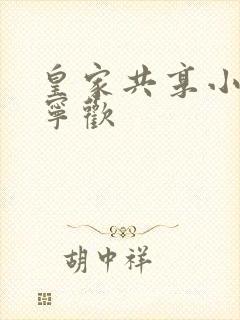 皇家共享小
寧歡
胡中祥